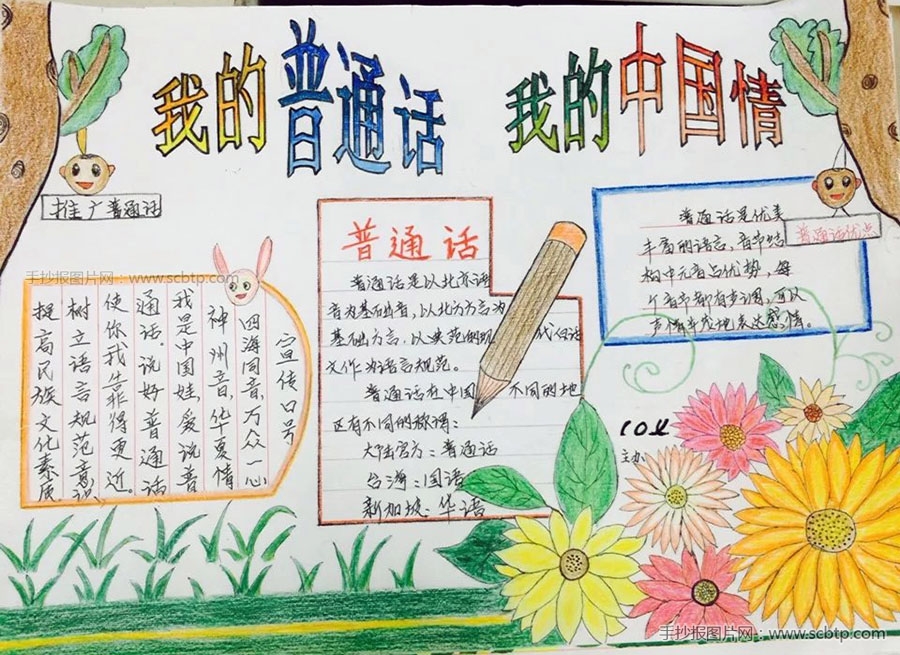 我的普通话 我的中国情
推广普通话
手抄报图片网：www.scbtp.com
宣传口号
四海同音,万众一心
神州音,华夏情
我是中国娃,爱说普
通话.说好普通话
使你我靠得更近。
树立语言规范意识
提高民族文化素质
普通话
普通话是以北京语
音为基础音,以北方方言为
基础方言,以典范的现 代白话
文作为语言规范。
普通话在中国 不同的地
区有不同的称谓:
大陆官方:普通话
台湾:国语
新加坡:华语
普通话优点
普通话是优美
丰富的语言、音节结
构中元音占优势,每
个音节都有声调,可以
声情并茂地表达感情。
主办
手抄报图片网：www.scbtp.com